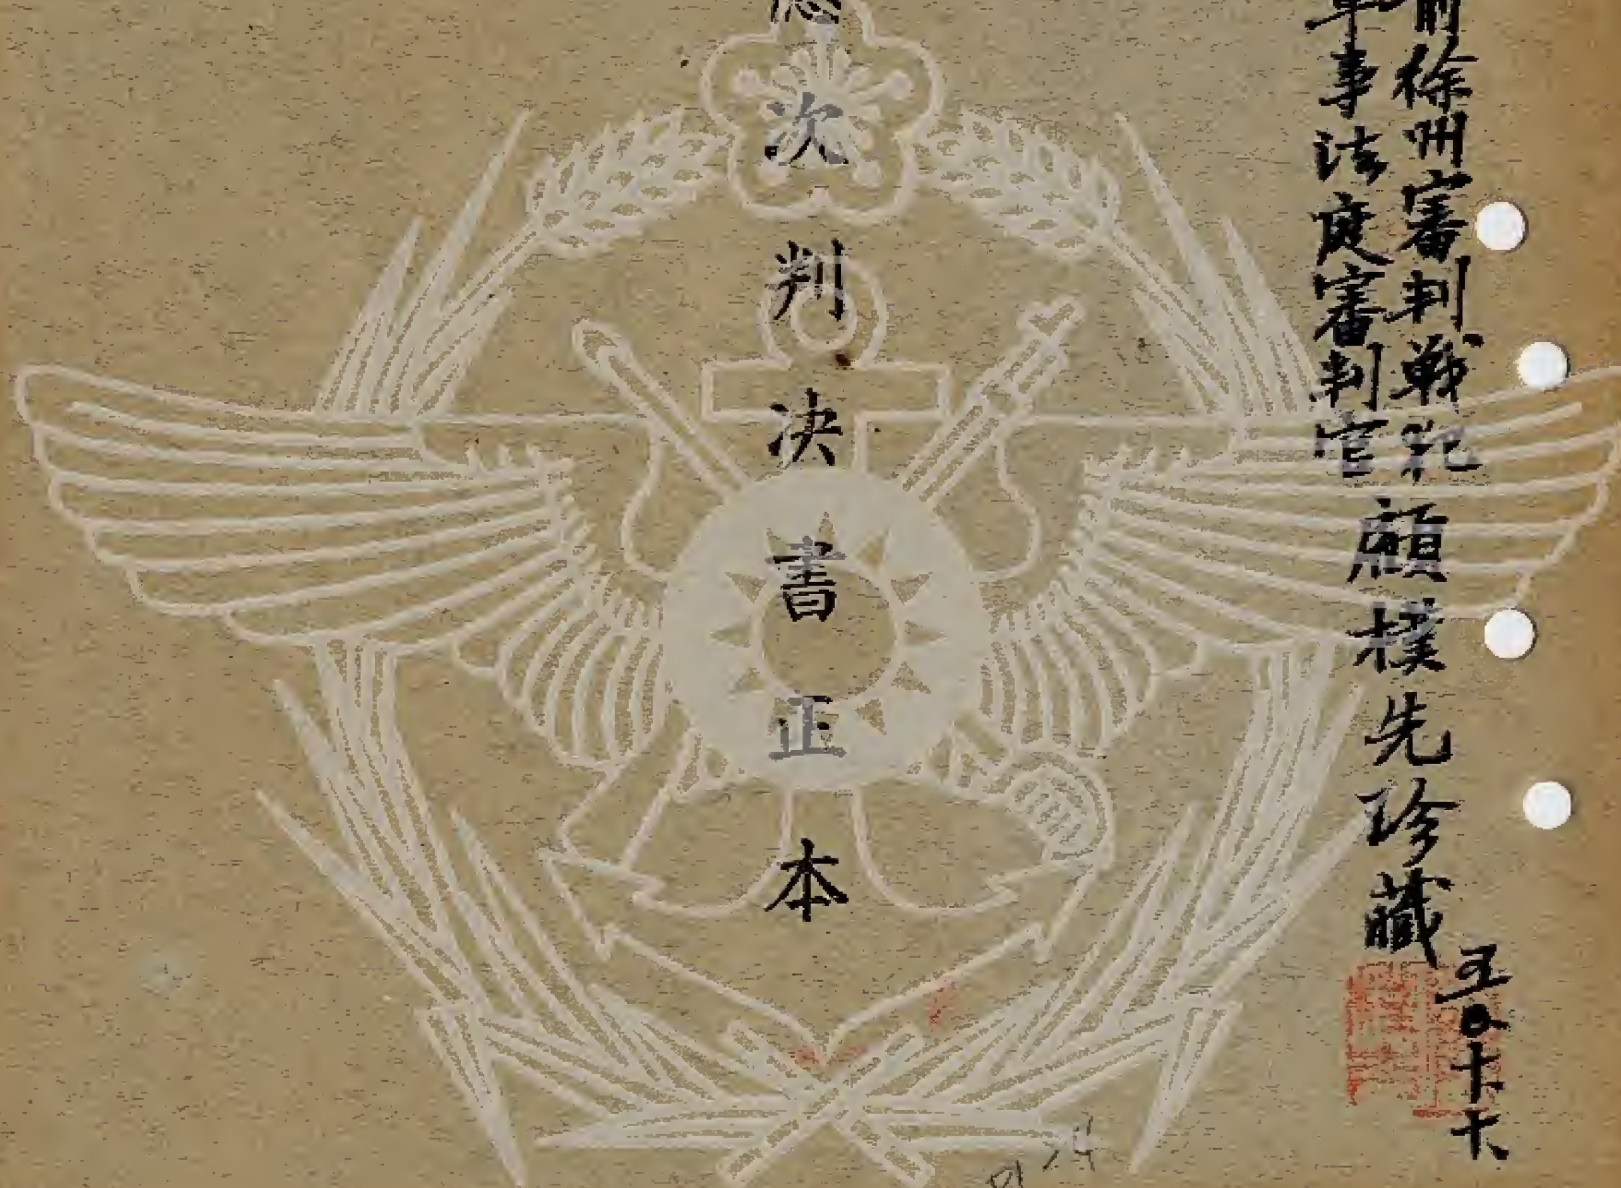 前徐州審判戰犯
軍事法庭審判官顧樸先珍藏
五〇十六
次判決書正本